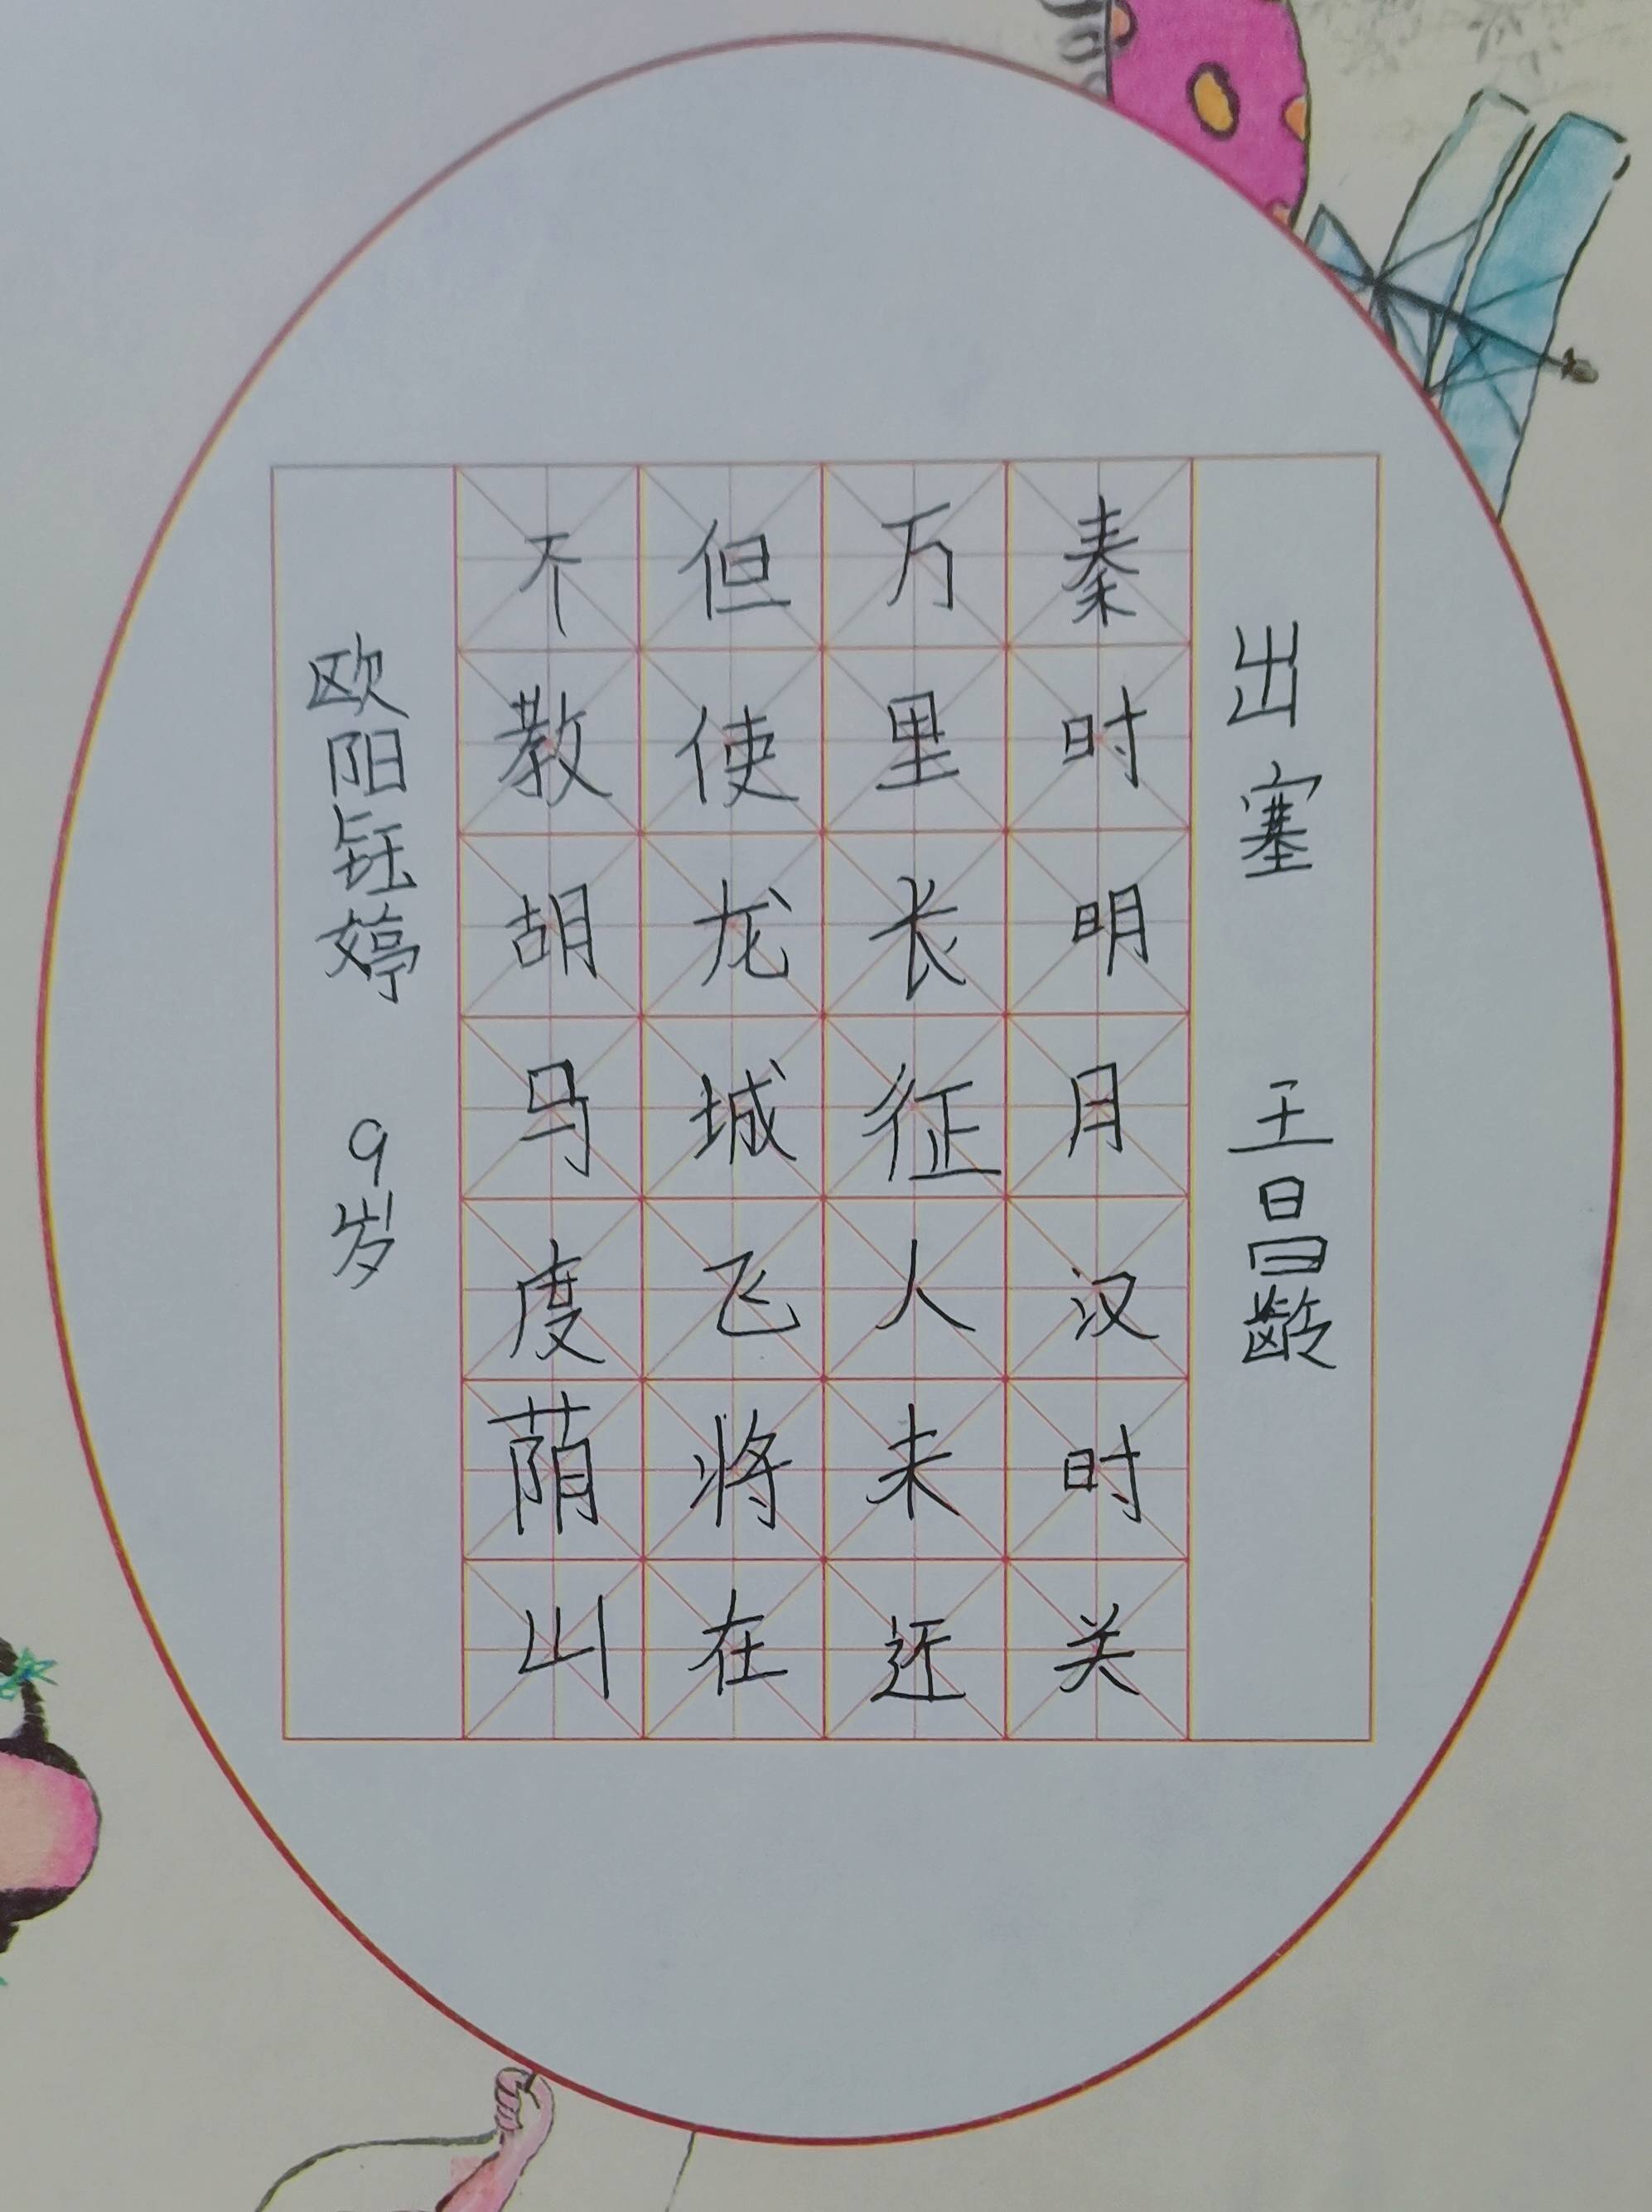 出塞 王昌龄
秦时明月汉时关
万里长征人未近
但使龙城飞将在
不教胡马度荫山
欧阳钰婷 9岁